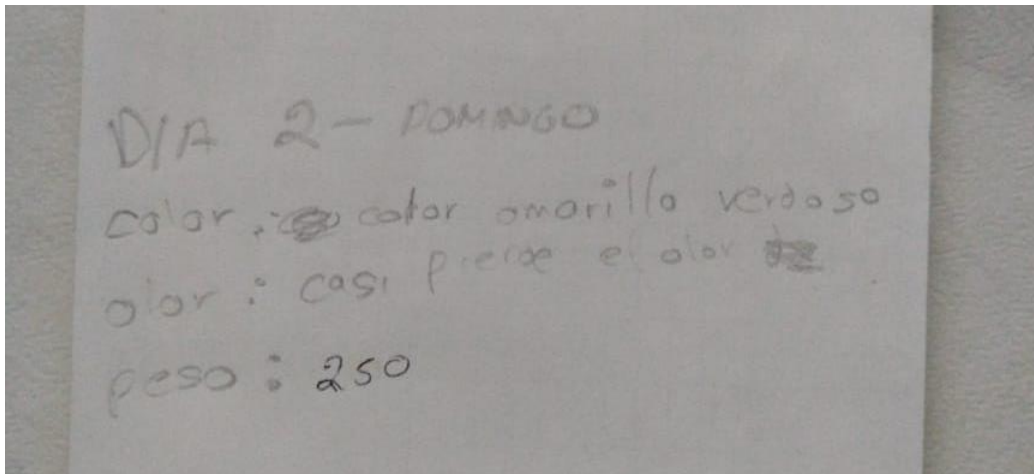 DIA 2 - DOMINGO
color: color amarillo verdoso
olor: casi pierde el olor
peso: 250